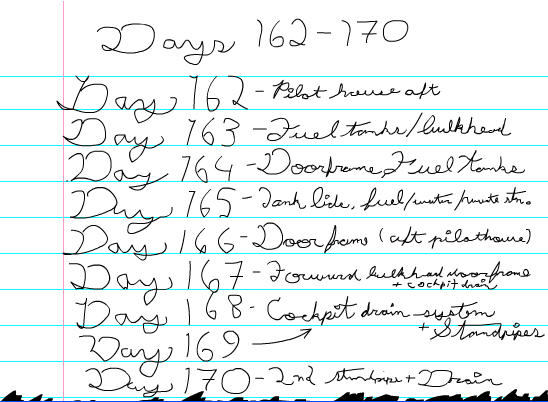 Days 162-170
Day 162 - Pilot house aft
Day 163 - Fuel tanks/bulkhead
Day 164 - Doorframe, Fuel tanks
Day 165 - Tank lids, fuel/water/ stn.
Day 166 - Doorframe (aft pilothouse)
Day 167 - Forward bulkhead doorframe
+ cockpit drain
Day 168 - Cockpit drain system
+ Standpipes
Day 169
Day 170 - 2nd standpipe + Drain